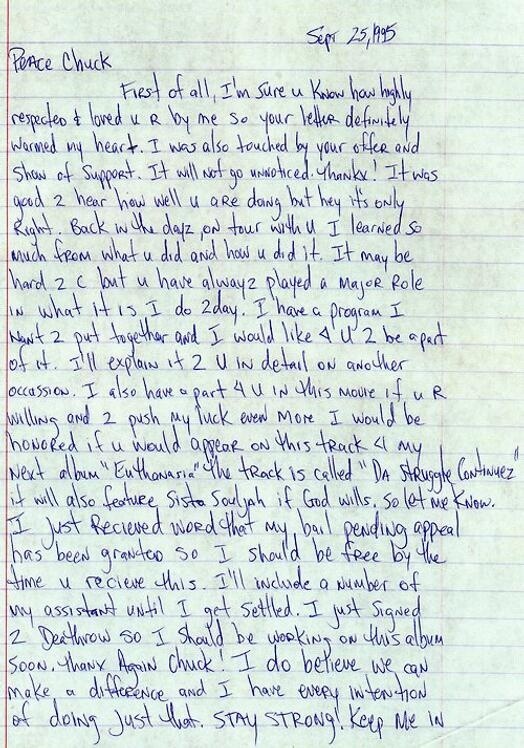 Sept 25, 1995
Peace Chuck
First of all, I'm sure u know how highly
respected & loved u R by me so your letter definitely
warmed my heart. I was also touched by your offer and
show of support. It will not go unnoticed. Thankx! It was
good 2 hear how well u are doing but hey it's only
Right. Back in the dayz, on tour with u I learned so
much from what u did and how u did it. It may be
hard 2 c but u have alwayz played a major role
in what it is I do 2day. I have a program I
want 2 put together and I would like 4 u 2 be a part
of it. I'll explain it 2 u in detail on another
occassion. I also have a part 4 u in this movie if u R
willing and 2 push my luck even more I would be
honored if u would appear on this track 4 my
Next album "Euthanasia" the track is called "Da Struggle Continuez"
it will also feature Sista Souljah if God wills. So let me know.
I just Recieved word that my bail pending appeal
has been granted so I should be free by the
time u recieve this. I'll include a number of
my assistant until I get settled. I just signed
2 Deathrow so I should be working on this album
soon. Thanx Again Chuck! I do believe we can
make a difference and I have every intention
of doing just that. STAY STRONG! Keep me in